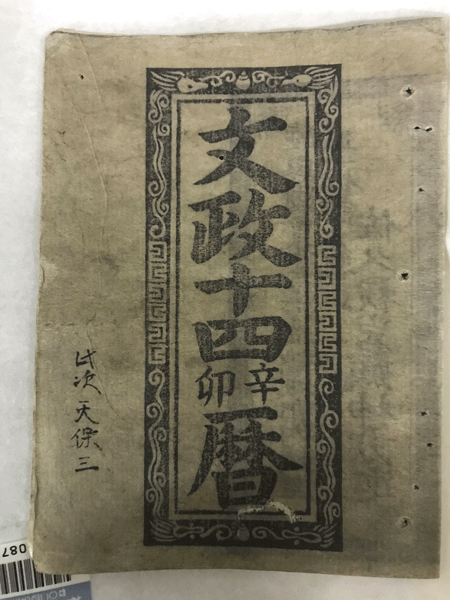 文政十四辛卯暦
此次天保三
087